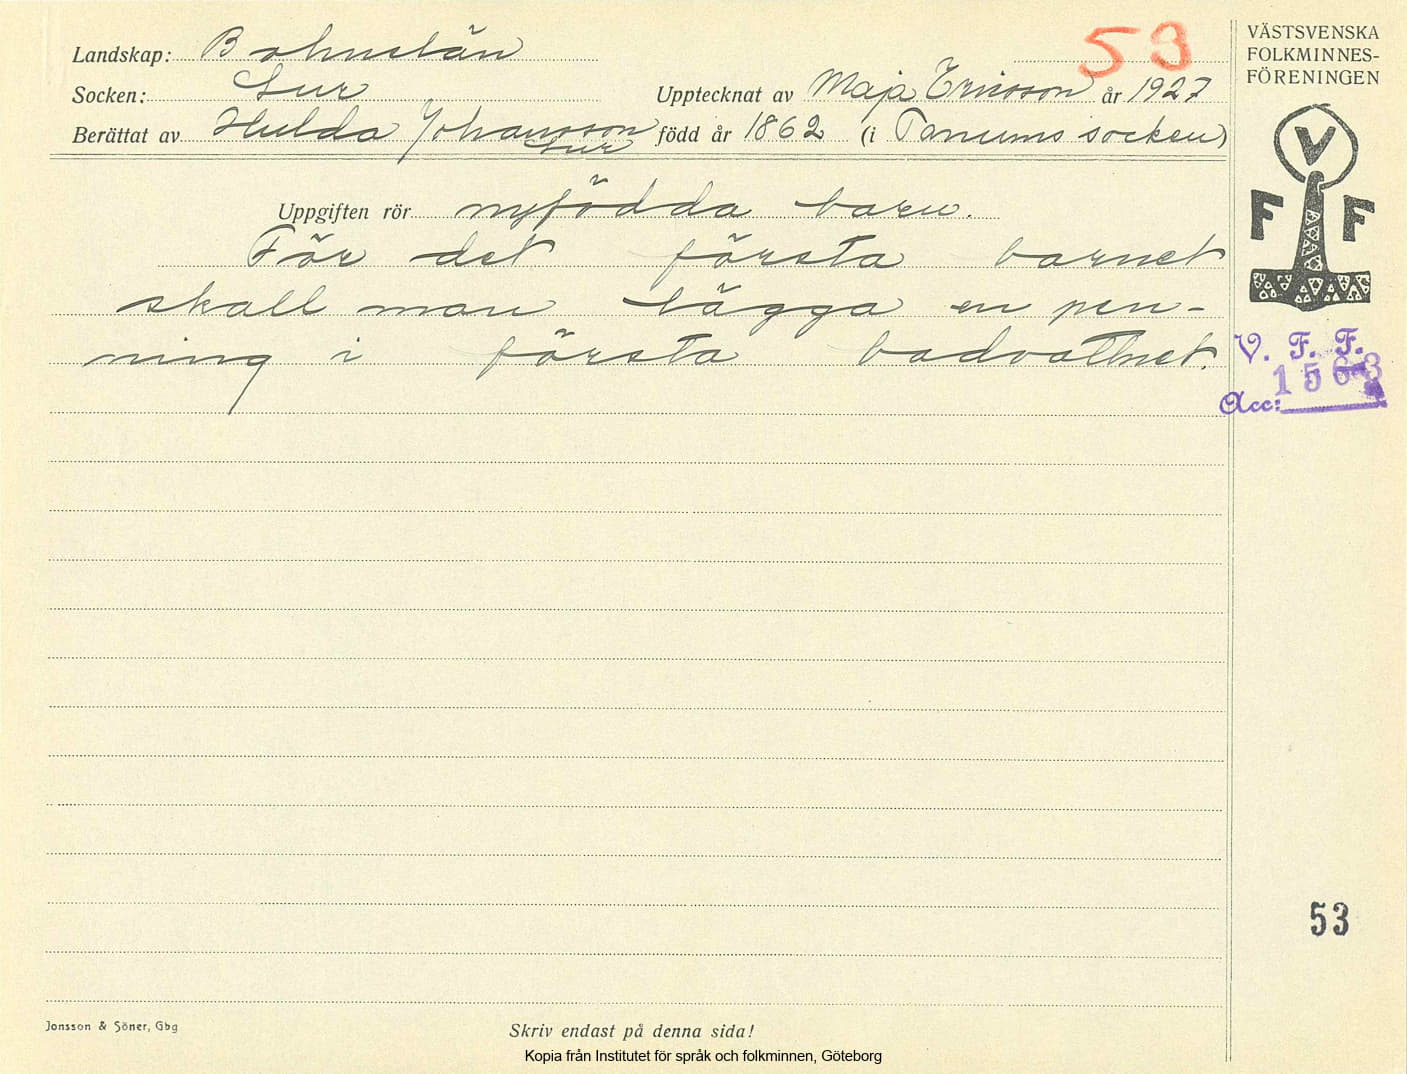 53
VÄSTSVENSKA
FOLKMINNES-
FÖRENINGEN
Landskap: Bohuslän
Socken: Lur
Upptecknat av Maja Ericsson år 1927
Berättat av Hulda Johansson född år 1862 (i Tanums socken)
Lur
V
F F
Uppgiften rör nyfödda barn.
För det första barnet
skall man lägga en pen-
ning i första badvattnet.
V. F. F.
1563
Acc:
53
Jonsson & Söner, Gbg
Skriv endast på denna sida!
Kopia från Institutet för språk och folkminnen, Göteborg